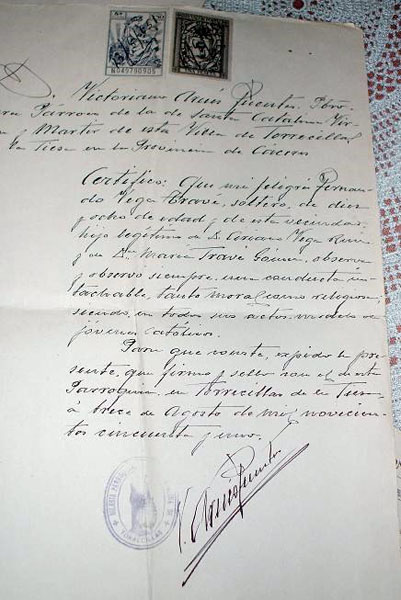 D. Victoriano Pbro
Párroco de la de Santa Catalina Vir
y Martir de esta Villa de Torrecillas
la Tiesa en la Provincia de Cáceres
Certifico: Que mi feligrés Fernan-
do Vega Travé, soltero, de diez
y ocho de edad y de esta vecindad,
hijo legítimo de D. Vega
y de Dª Maria Travé observa
y observó siempre una conducta in-
tachable, tanto moral como religiosa
siendo, en todos sus actos, modelo de
jóvenes católicos.
Para que conste, expido la pre-
sente, que firmo y sello con el de esta
Parroquia, en Torrecillas de la Tiesa
á trece de Agosto de mil novecien-
tos cincuenta y uno.